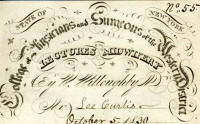 No. 55
STATE OF NEW YORK
College of Physicians and Surgeons of the Western District
LECTURES ON MIDWIFERY
By W. Willoughby M.D.
Mr. Lee Curtis
October 5 1830